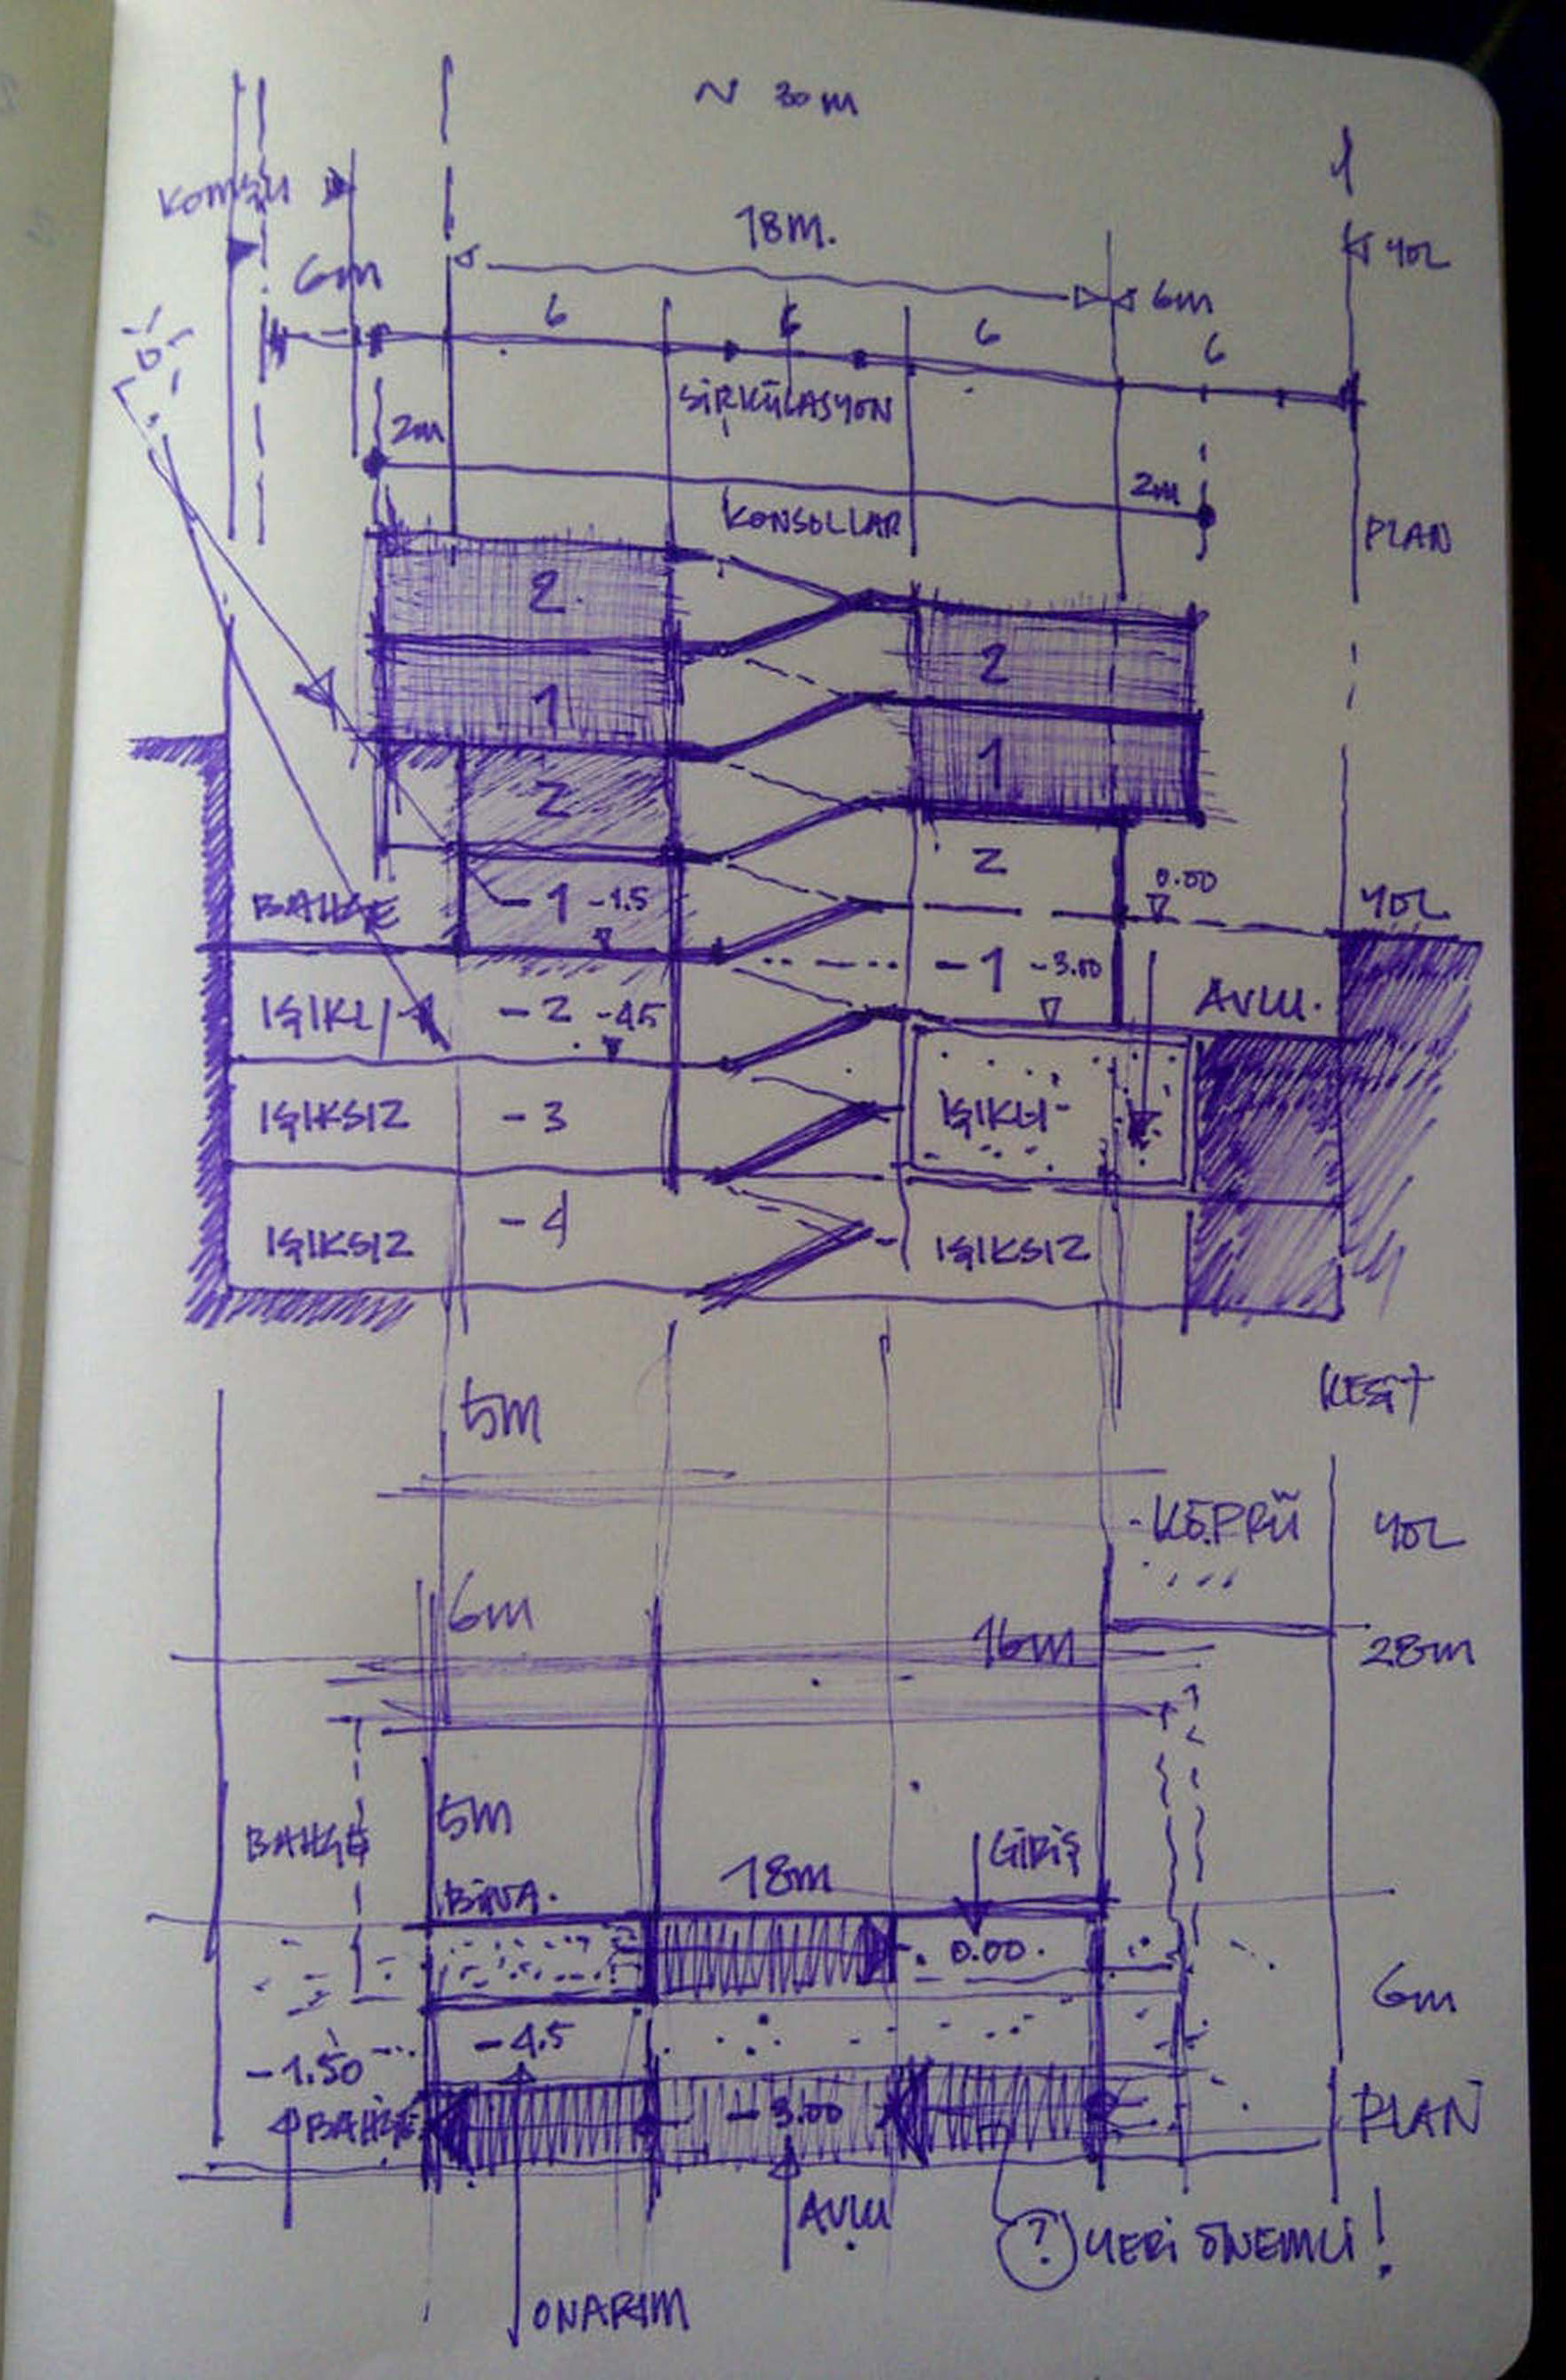 ~ 30m
KOMŞU
18m.
YOL
6m
6m
6
6
6
6
SİRKÜLASYON
2m
2m
KONSOLLAR
PLAN
2.
2
1
1
Z
Z
0.00
BAHÇE
-1 -1.5
YOL
-1 -3.00
AVLU.
IŞIKLI
-2 -4.5
IŞIKSIZ
-3
IŞIKLI
IŞIKSIZ
-4
IŞIKSIZ
KESİT
5m
KÖPRÜ
YOL
6m
16m
28m
BAHÇE
5m
GİRİŞ
18m
BİNA.
0.00.
6m
-4.5
-1.50
BAHÇE
-3.00
PLAN
AVLU
? YERİ ÖNEMLİ!
ONARIM